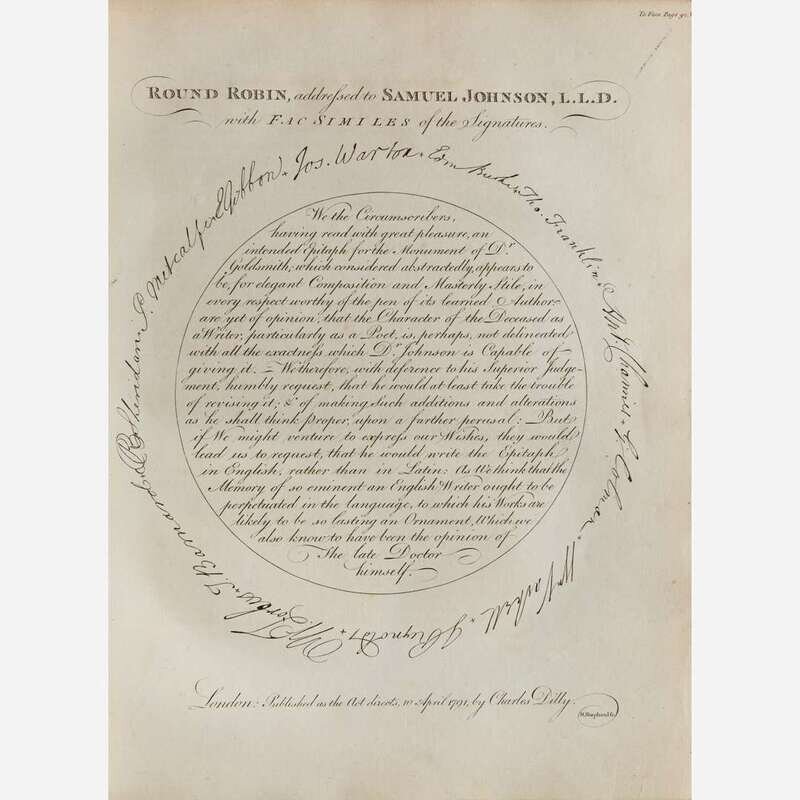 To Face Page 92.
ROUND ROBIN, addressed to SAMUEL JOHNSON, L.L.D.
with FAC SIMILES of the Signatures.
Edm Burke. Tho. Franklin. Ant. Chamier. G. Colman. Wm Vachell. J Reynolds. W Forbes. T. Barnard. R B Sheridan. P. Metcalfe. E Gibbon. Jos. Warton.
We the Circumscribers,
having read with great pleasure, an
intended Epitaph for the Monument of Dr.
Goldsmith; which considered abstractedly, appears to
be, for elegant Composition and Masterly Stile, in
every respect worthy of the pen of its learned Author,
are yet of opinion, that the Character of the Deceased as
a Writer, particularly as a Poet, is, perhaps, not delineated
with all the exactness which Dr. Johnson is Capable of
giving it. – We therefore, with deference to his Superior Judge-
ment, humbly request, that he would at least take the trouble
of revising it; & of making Such additions and alterations
as he shall think Proper, upon a farther perusal: But
if We might venture to express our Wishes, they would
lead us to request, that he would write the Epitaph
in English, rather than in Latin: As We think that the
Memory of so eminent an English Writer ought to be
perpetuated in the language, to which his Works are
likely to be so lasting an Ornament, Which we
also know to have been the opinion of
The late Doctor
himself.
London: Published as the Act directs, 10 April 1791, by Charles Dilly.
H. Shepherd sc.